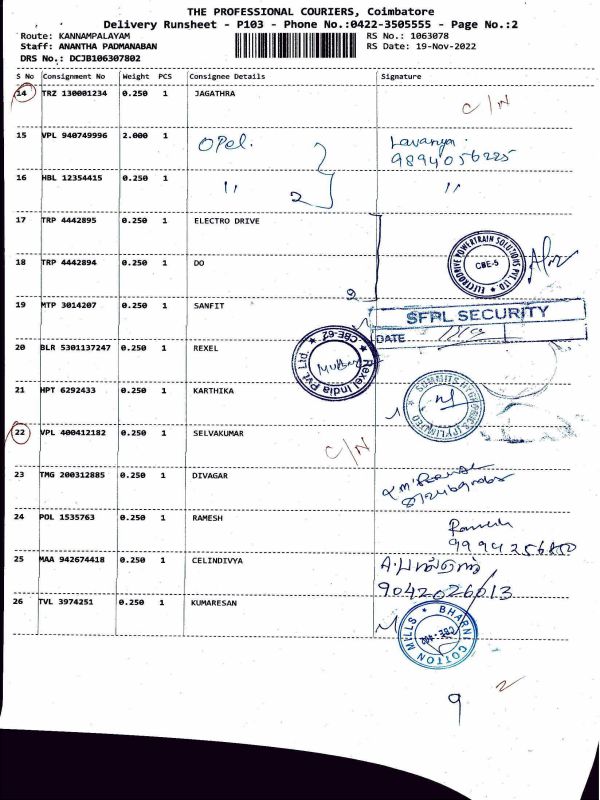 THE PROFESSIONAL COURIERS, Coimbatore
Delivery Runsheet - P103 - Phone No.:0422-3505555 - Page No.:2
Route: KANNAMPALAYAM RS No.: 1063078
Staff: ANANTHA PADMANABAN RS Date: 19-Nov-2022
DRS No.: DCJB106307802
S No Consignment No Weight PCS Consignee Details Signature
14 TRZ 130001234 0.250 1 JAGATHRA C/N
15 VPL 940749996 2.000 1 OPel. Lavanya.
9894056225
16 HBL 12354415 0.250 1 " 2 "
17 TRP 4442895 0.250 1 ELECTRO DRIVE
ELECTRODRIVE POWERTRAIN SOLUTIONS PVT LTD. CBE-5
18 TRP 4442894 0.250 1 DO
2
19 MTP 3014207 0.250 1 SANFIT
SFPL SECURITY
DATE
20 BLR 5301137247 0.250 1 REXEL
Rexel India Pvt. Ltd. CBE-62
21 HPT 6292433 0.250 1 KARTHIKA
22 VPL 400412182 0.250 1 SELVAKUMAR C/N
23 TMG 200312885 0.250 1 DIVAGAR
24 POL 1535763 0.250 1 RAMESH Ramesh
25 MAA 942674418 0.250 1 CELINDIVYA
9042026013
26 TVL 3974251 0.250 1 KUMARESAN
BHARNI COTTON MILLS CBE-402
9 2